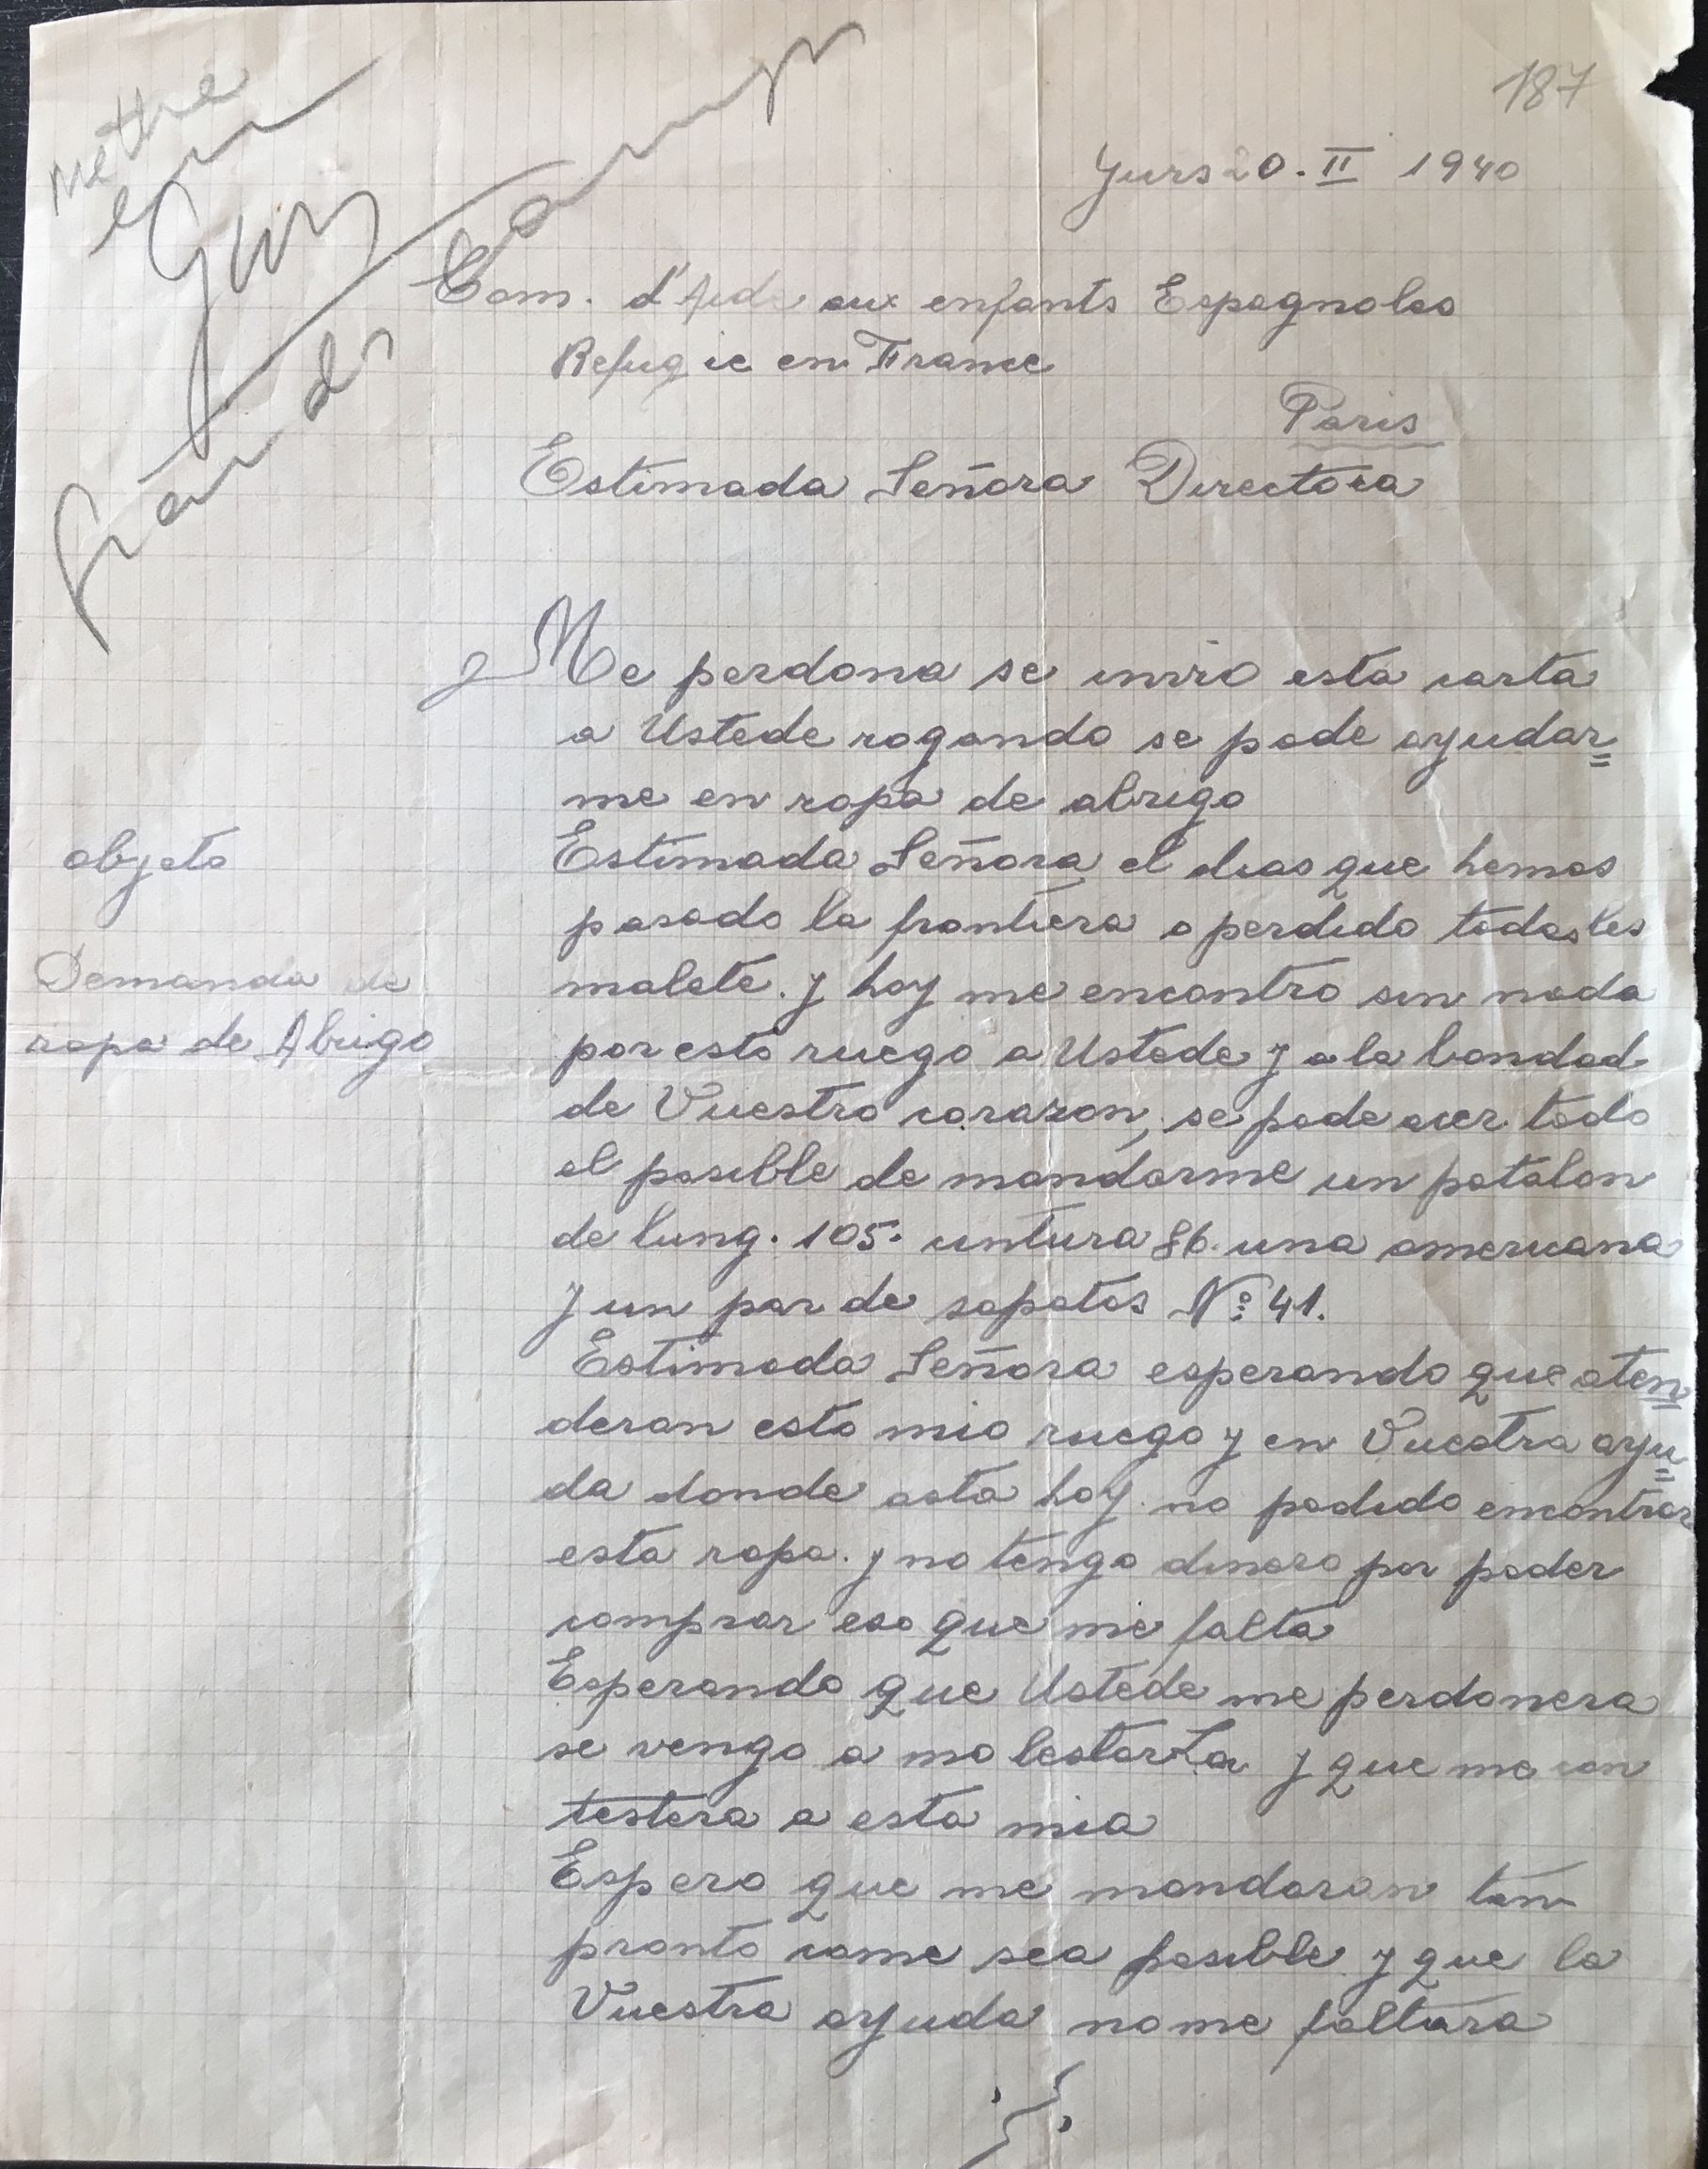 187
Mettre
Gurs 20. II 1940
Com. d'Aide aux enfants Espagnoles
Refugie en France
Paris
Estimada Señora Directora
Me perdona se inviо esta carta
a Ustede rogando se pode ayudar=
me en ropa de abrigo
objeto
Demanda de
ropa de Abrigo
Estimada Señora el dias que hemos
pasado la frontiera o perdido todas les
malete. y hoy me encontro sin nada
por esto ruego a Ustede y a la bondad
de Vuestro corazon, se pode acer todo
el posible de mandarme un patalon
de lung. 105. cintura 86. una americana
y un par de sapatos Nº 41.
Estimada Señora esperando que aten=
deran esto mio ruego y en Vuestra ayu=
da donde asta hoy no podido encontrar
esta ropa. y no tengo dinero por poder
comprar eso que me falta
Esperando que Ustede me perdonera
se vengo a molestarLa y que me con
testera a esta mia
Espero que me mandaran tan
pronto come sea posible y que la
Vuestra ayuda no me faltara